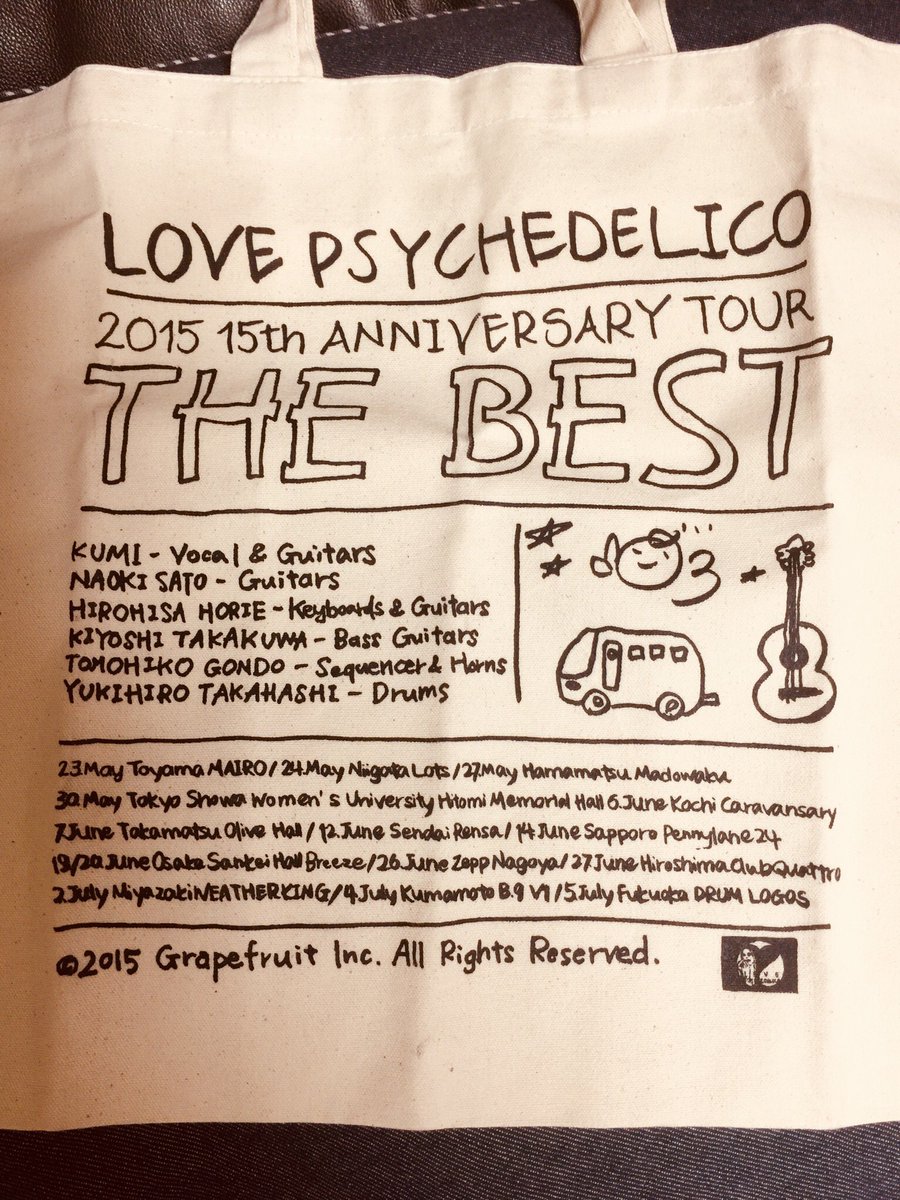 LOVE PSYCHEDELICO
2015 15th ANNIVERSARY TOUR
THE BEST
KUMI - Vocal & Guitars
NAOKI SATO - Guitars
HIROHISA HORIE - Keyboards & Guitars
KIYOSHI TAKAKUWA - Bass Guitars
TOMOHIKO GONDO - Sequencer & Horns
YUKIHIRO TAKAHASHI - Drums
3
23.May Toyama MAIRO / 24.May Niigata Lots / 27.May Hamamatsu Madowaku
30.May Tokyo Showa Women's University Hitomi Memorial Hall 6.June Kochi Caravansary
7.June Takamatsu Olive Hall / 12.June Sendai Rensa / 14.June Sapporo Pennylane 24
19/20.June Osaka Sankei Hall Breeze / 26.June Zepp Nagoya / 27.June Hiroshima Club Quattro
2.July Miyazaki WEATHERKING / 4.July Kumamoto B.9 V1 / 5.July Fukuoka DRUM LOGOS
©2015 Grapefruit Inc. All Rights Reserved.